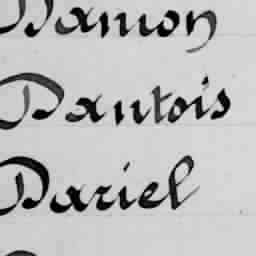 Damon
Dantois
Dariel